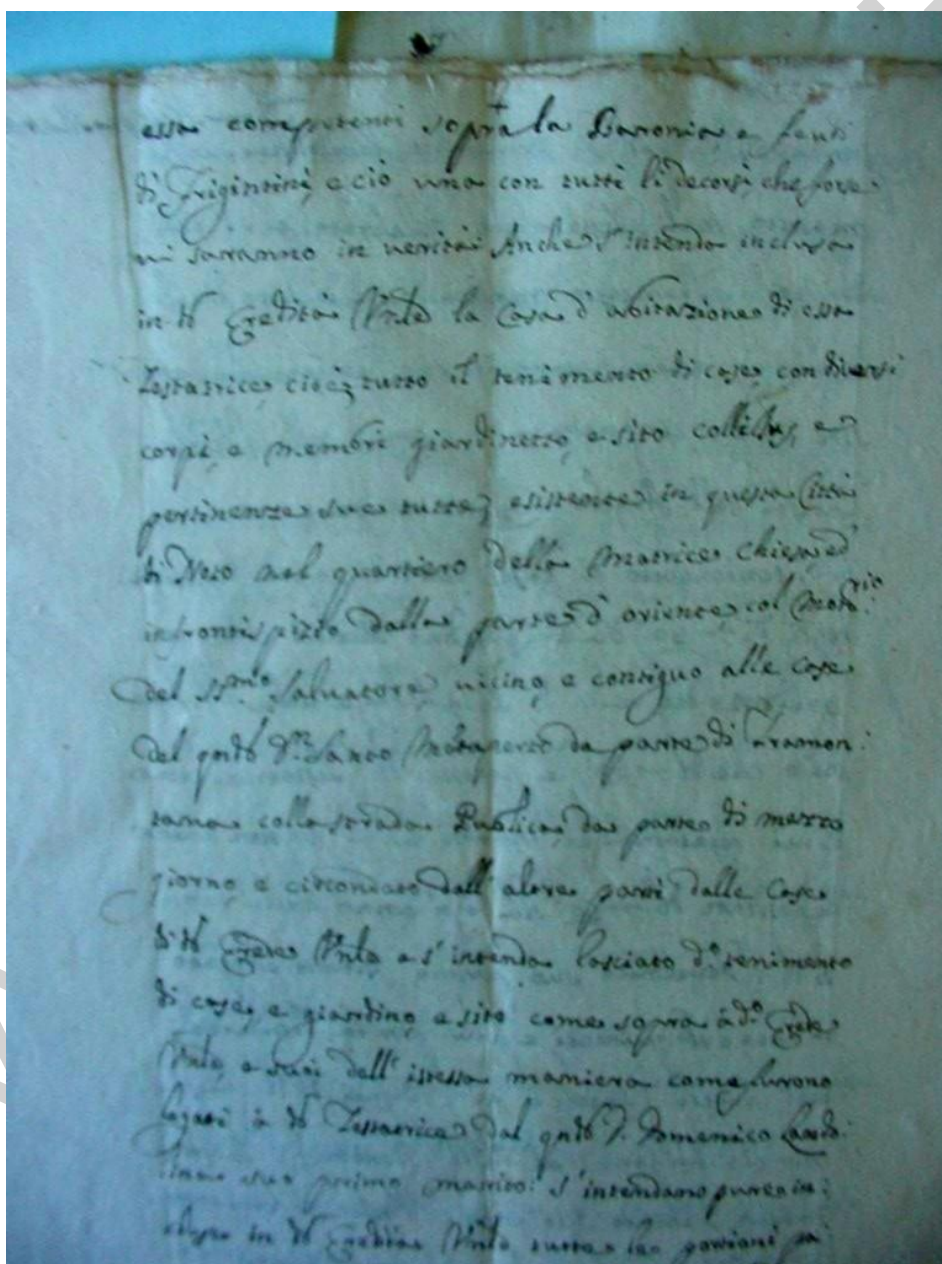 essa competenti sopra la Baronia e feudi
di Frigintini, e ciò una con tutti li decorsi, che forse
vi saranno in verità. Anche s'intenda inclusa
in da Eredità Vnle la Casa d'abitazione di essa
Testatrice, cioè, tutto il tenimento di case, con diversi
corpi, e membri giardinetto, e sito
pertinenze sue tutte, esistente in questa Città
di Noto nel quartiero della Matrice Chiesa, ed
in frontispizio dalla parte d'oriente col Monrio
del SSmo Salvatore, vicino, e contiguo alle case
del qndm da parte di tramon:
tana colla strada Publica, da parte di mezzo
giorno, e circondato dall'altre parti dalle Case
di do Erede Vnle e s'intenda lasciato do tenimento
di case, e giardino, e sito come sopra à do Erede
Vnle, e suoi dell'istessa maniera come furono
legati à da Testatrice dal qndm D. Domenico Lando:
lina suo primo marito: s'intendano pure in:
in da Eredità Vnle tutte le